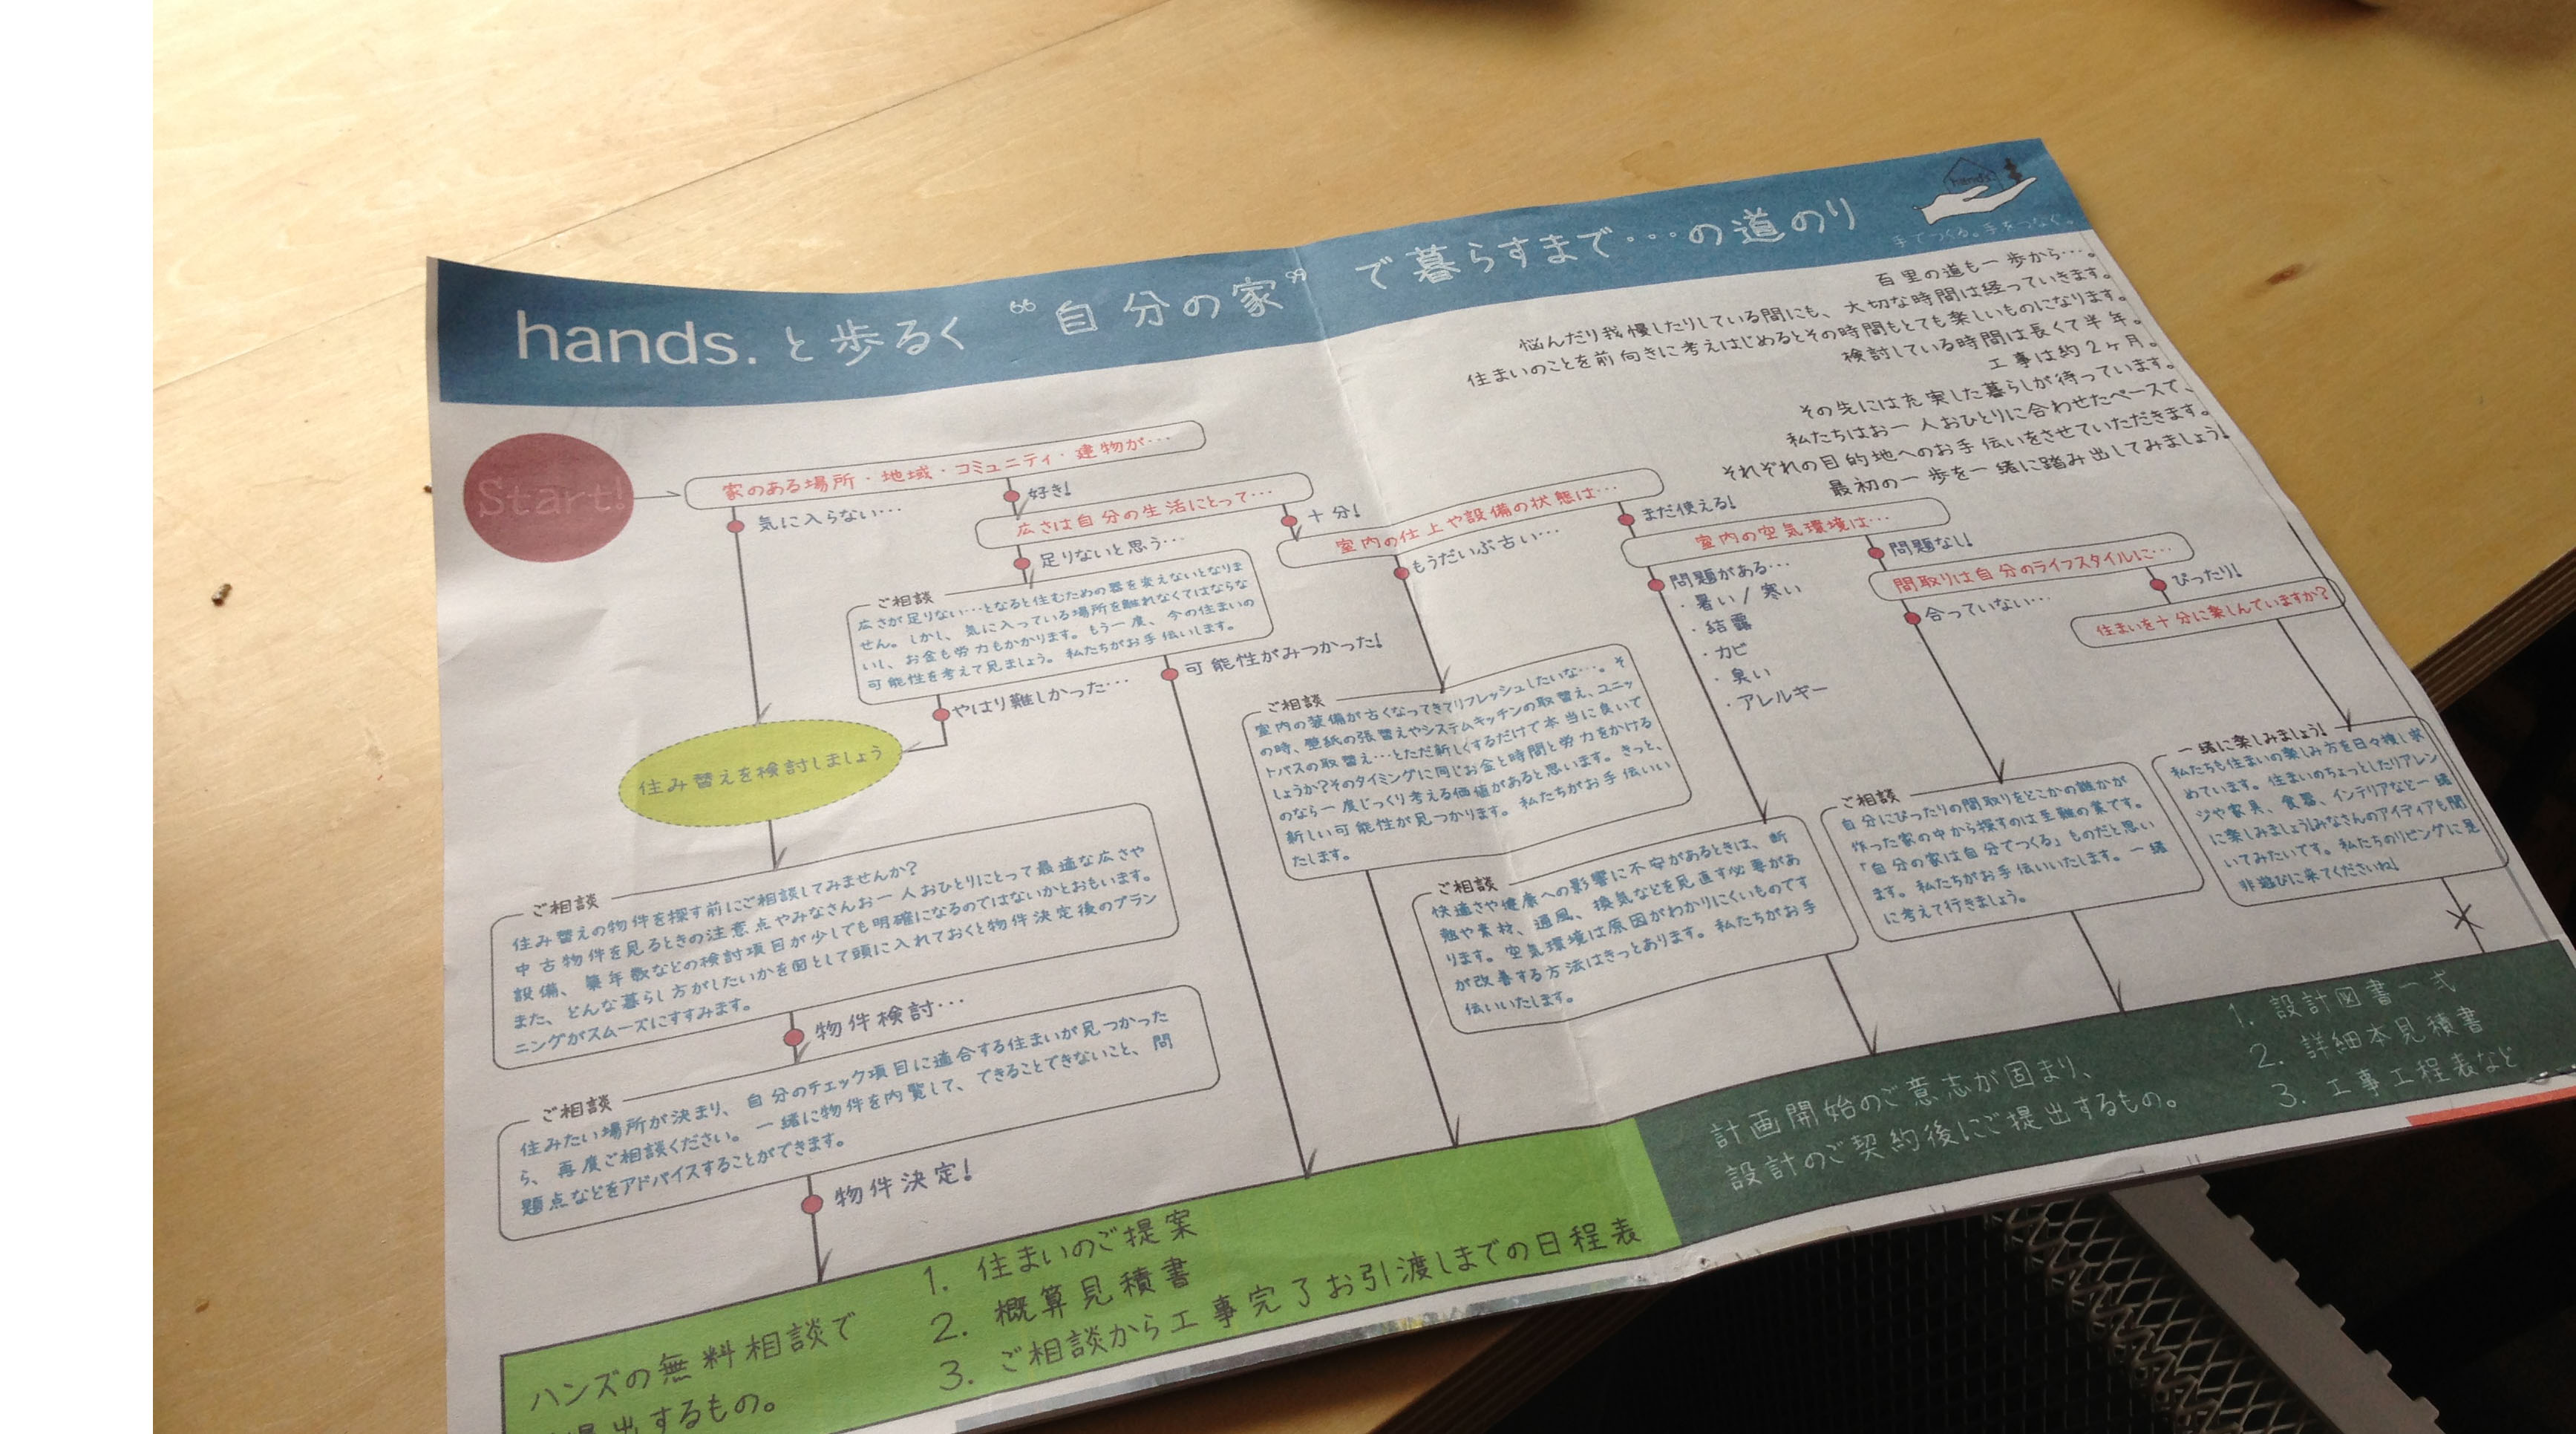 hands.と歩るく “自分の家” で暮らすまで…の道のり
hands.
手でつくる。手をつなぐ。
百里の道も一歩から…。
悩んだり我慢したりしている間にも、大切な時間は経っていきます。
住まいのことを前向きに考えはじめるとその時間もとても楽しいものになります。
検討している時間は長くて半年。
工事は約2ヶ月。
その先には充実した暮らしが待っています。
私たちはお一人おひとりに合わせたペースで、
それぞれの目的地へのお手伝いをさせていただきます。
最初の一歩を一緒に踏み出してみましょう!
Start!
家のある場所・地域・コミュニティ・建物が…
気に入らない…
好き!
広さは自分の生活にとって…
足りないと思う…
十分!
室内の仕上や設備の状態は…
もうだいぶ古い…
まだ使える!
室内の空気環境は…
問題がある…
・暑い / 寒い
・結露
・カビ
・臭い
・アレルギー
問題なし!
間取りは自分のライフスタイルに…
合っていない…
ぴったり!
住まいを十分に楽しんでいますか?
ご相談
広さが足りない…となると住むための器を変えないとなりま
せん。しかし、気に入っている場所を離れなくてはならな
いし、お金も労力もかかります。もう一度、今の住まいの
可能性を考えて見ましょう。私たちがお手伝いします。
やはり難しかった…
可能性がみつかった!
住み替えを検討しましょう
ご相談
住み替えの物件を探す前にご相談してみませんか?
中古物件を見るときの注意点やみなさんお一人おひとりにとって最適な広さや
設備、築年数などの検討項目が少しでも明確になるのではないかとおもいます。
また、どんな暮らし方がしたいかを図として頭に入れておくと物件決定後のプラン
ニングがスムーズにすすみます。
物件検討…
ご相談
住みたい場所が決まり、自分のチェック項目に適合する住まいが見つかった
ら、再度ご相談ください。一緒に物件を内覧して、できることできないこと、問
題点などをアドバイスすることができます。
物件決定!
ご相談
室内の装備が古くなってきてリフレッシュしたいな…。そ
の時、壁紙の張替えやシステムキッチンの取替え、ユニッ
トバスの取替え…とただ新しくするだけで本当に良いで
しょうか?そのタイミングに同じお金と時間と労力をかける
のなら一度じっくり考える価値があると思います。きっと、
新しい可能性が見つかります。私たちがお手伝いい
たします。
ご相談
快適さや健康への影響に不安があるときは、断
熱や素材、通風、換気などを見直す必要があ
ります。空気環境は原因がわかりにくいものです
が改善する方法はきっとあります。私たちがお手
伝いいたします。
ご相談
自分にぴったりの間取りをどこかの誰かが
作った家の中から探すのは至難の業です。
「自分の家は自分でつくる」ものだと思い
ます。私たちがお手伝いいたします。一緒
に考えて行きましょう。
一緒に楽しみましょう!
私たちも住まいの楽しみ方を日々捜し求
めています。住まいのちょっとしたリアレン
ジや家具、食器、インテリアなど一緒
に楽しみましょう!みなさんのアイディアも聞
いてみたいです。私たちのリビングに是
非遊びに来てくださいね!
ハンズの無料相談で
提出するもの。
1. 住まいのご提案
2. 概算見積書
3. ご相談から工事完了お引渡しまでの日程表
計画開始のご意志が固まり、
設計のご契約後にご提出するもの。
1. 設計図書一式
2. 詳細本見積書
3. 工事工程表など